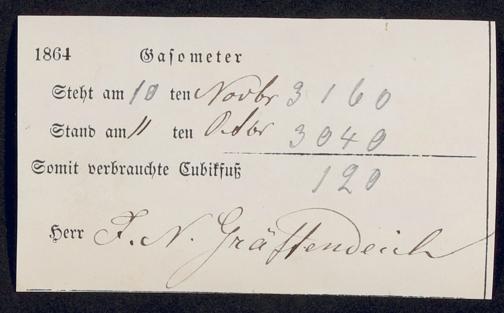 1864 Gasometer
Steht am 10 ten Novbr 3160
Stand am 11 ten Octbr 3040
Somit verbrauchte Cubikfuß 120
Herr J. N. Gräffendeich